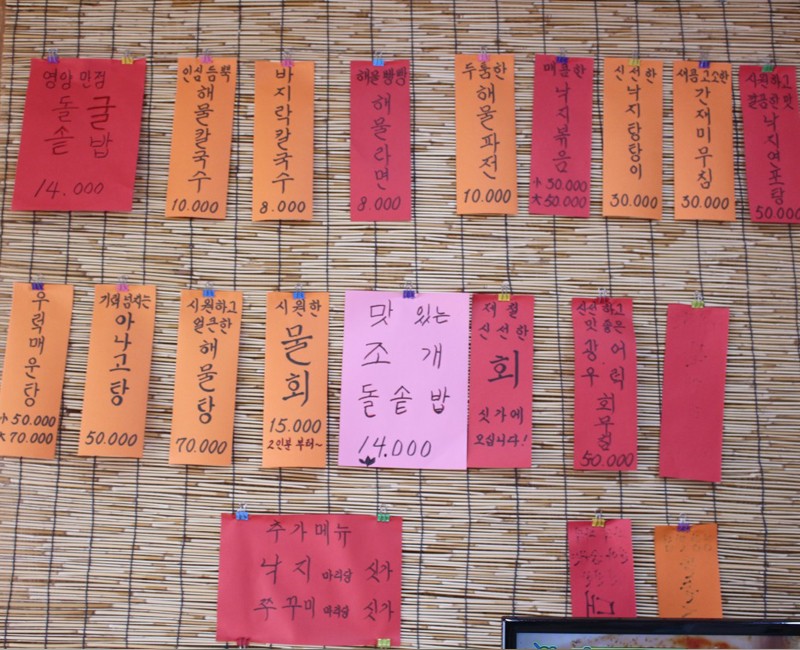 영양 만점
돌 굴
솥 밥
14.000
인심 듬뿍
해물칼국수
10.000
바지락칼국수
8.000
해물짱짱
해물라면
8.000
두툼한
해물파전
10.000
매콤한
낙지볶음
小 30.000
大 50.000
신선한
낙지탕탕이
30.000
새콤고소한
간재미무침
30.000
시원하고
깔끔한 맛
낙지연포탕
50.000
우럭매운탕
小 50.000
大 70.000
기력 넘치는
아나고탕
50.000
시원하고
얼큰한
해물탕
70.000
시원한
물회
15.000
2인분 부터~
맛 있는
조 개
돌 솥 밥
14.000
제철
신선한
회
싯가에
모십니다!
신선하고
맛 좋은
광 어
우 럭
회무침
50.000
추가메뉴
낙지 마리당 싯가
쭈꾸미 마리당 싯가